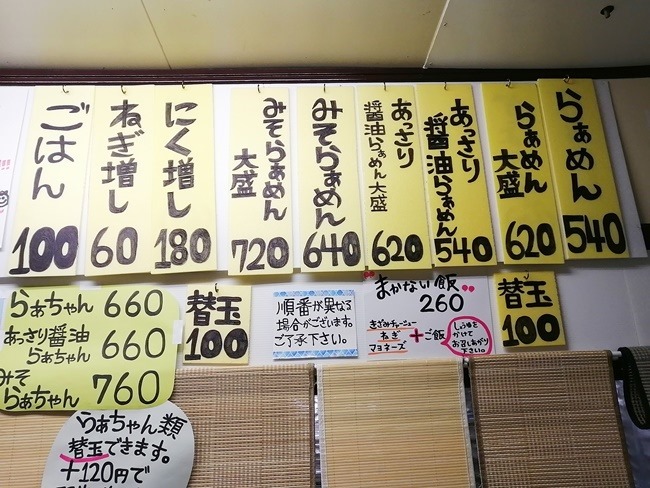 らぁめん
540
らぁめん
大盛
620
あっさり
醤油らぁめん
540
あっさり
醤油らぁめん大盛
620
みそらぁめん
640
みそらぁめん
大盛
720
にく増し
180
ねぎ増し
60
ごはん
100
らぁちゃん 660
あっさり醤油
らぁちゃん 660
みそ
らぁちゃん 760
替玉
100
順番が異なる
場合がございます。
ご了承下さい。
まかない飯
260
きざみチャーシュー
ねぎ
マヨネーズ
+ご飯
しょうゆを
かけて
お召しあがり
下さい。
替玉
100
らぁちゃん類
替玉できます。
+120円で